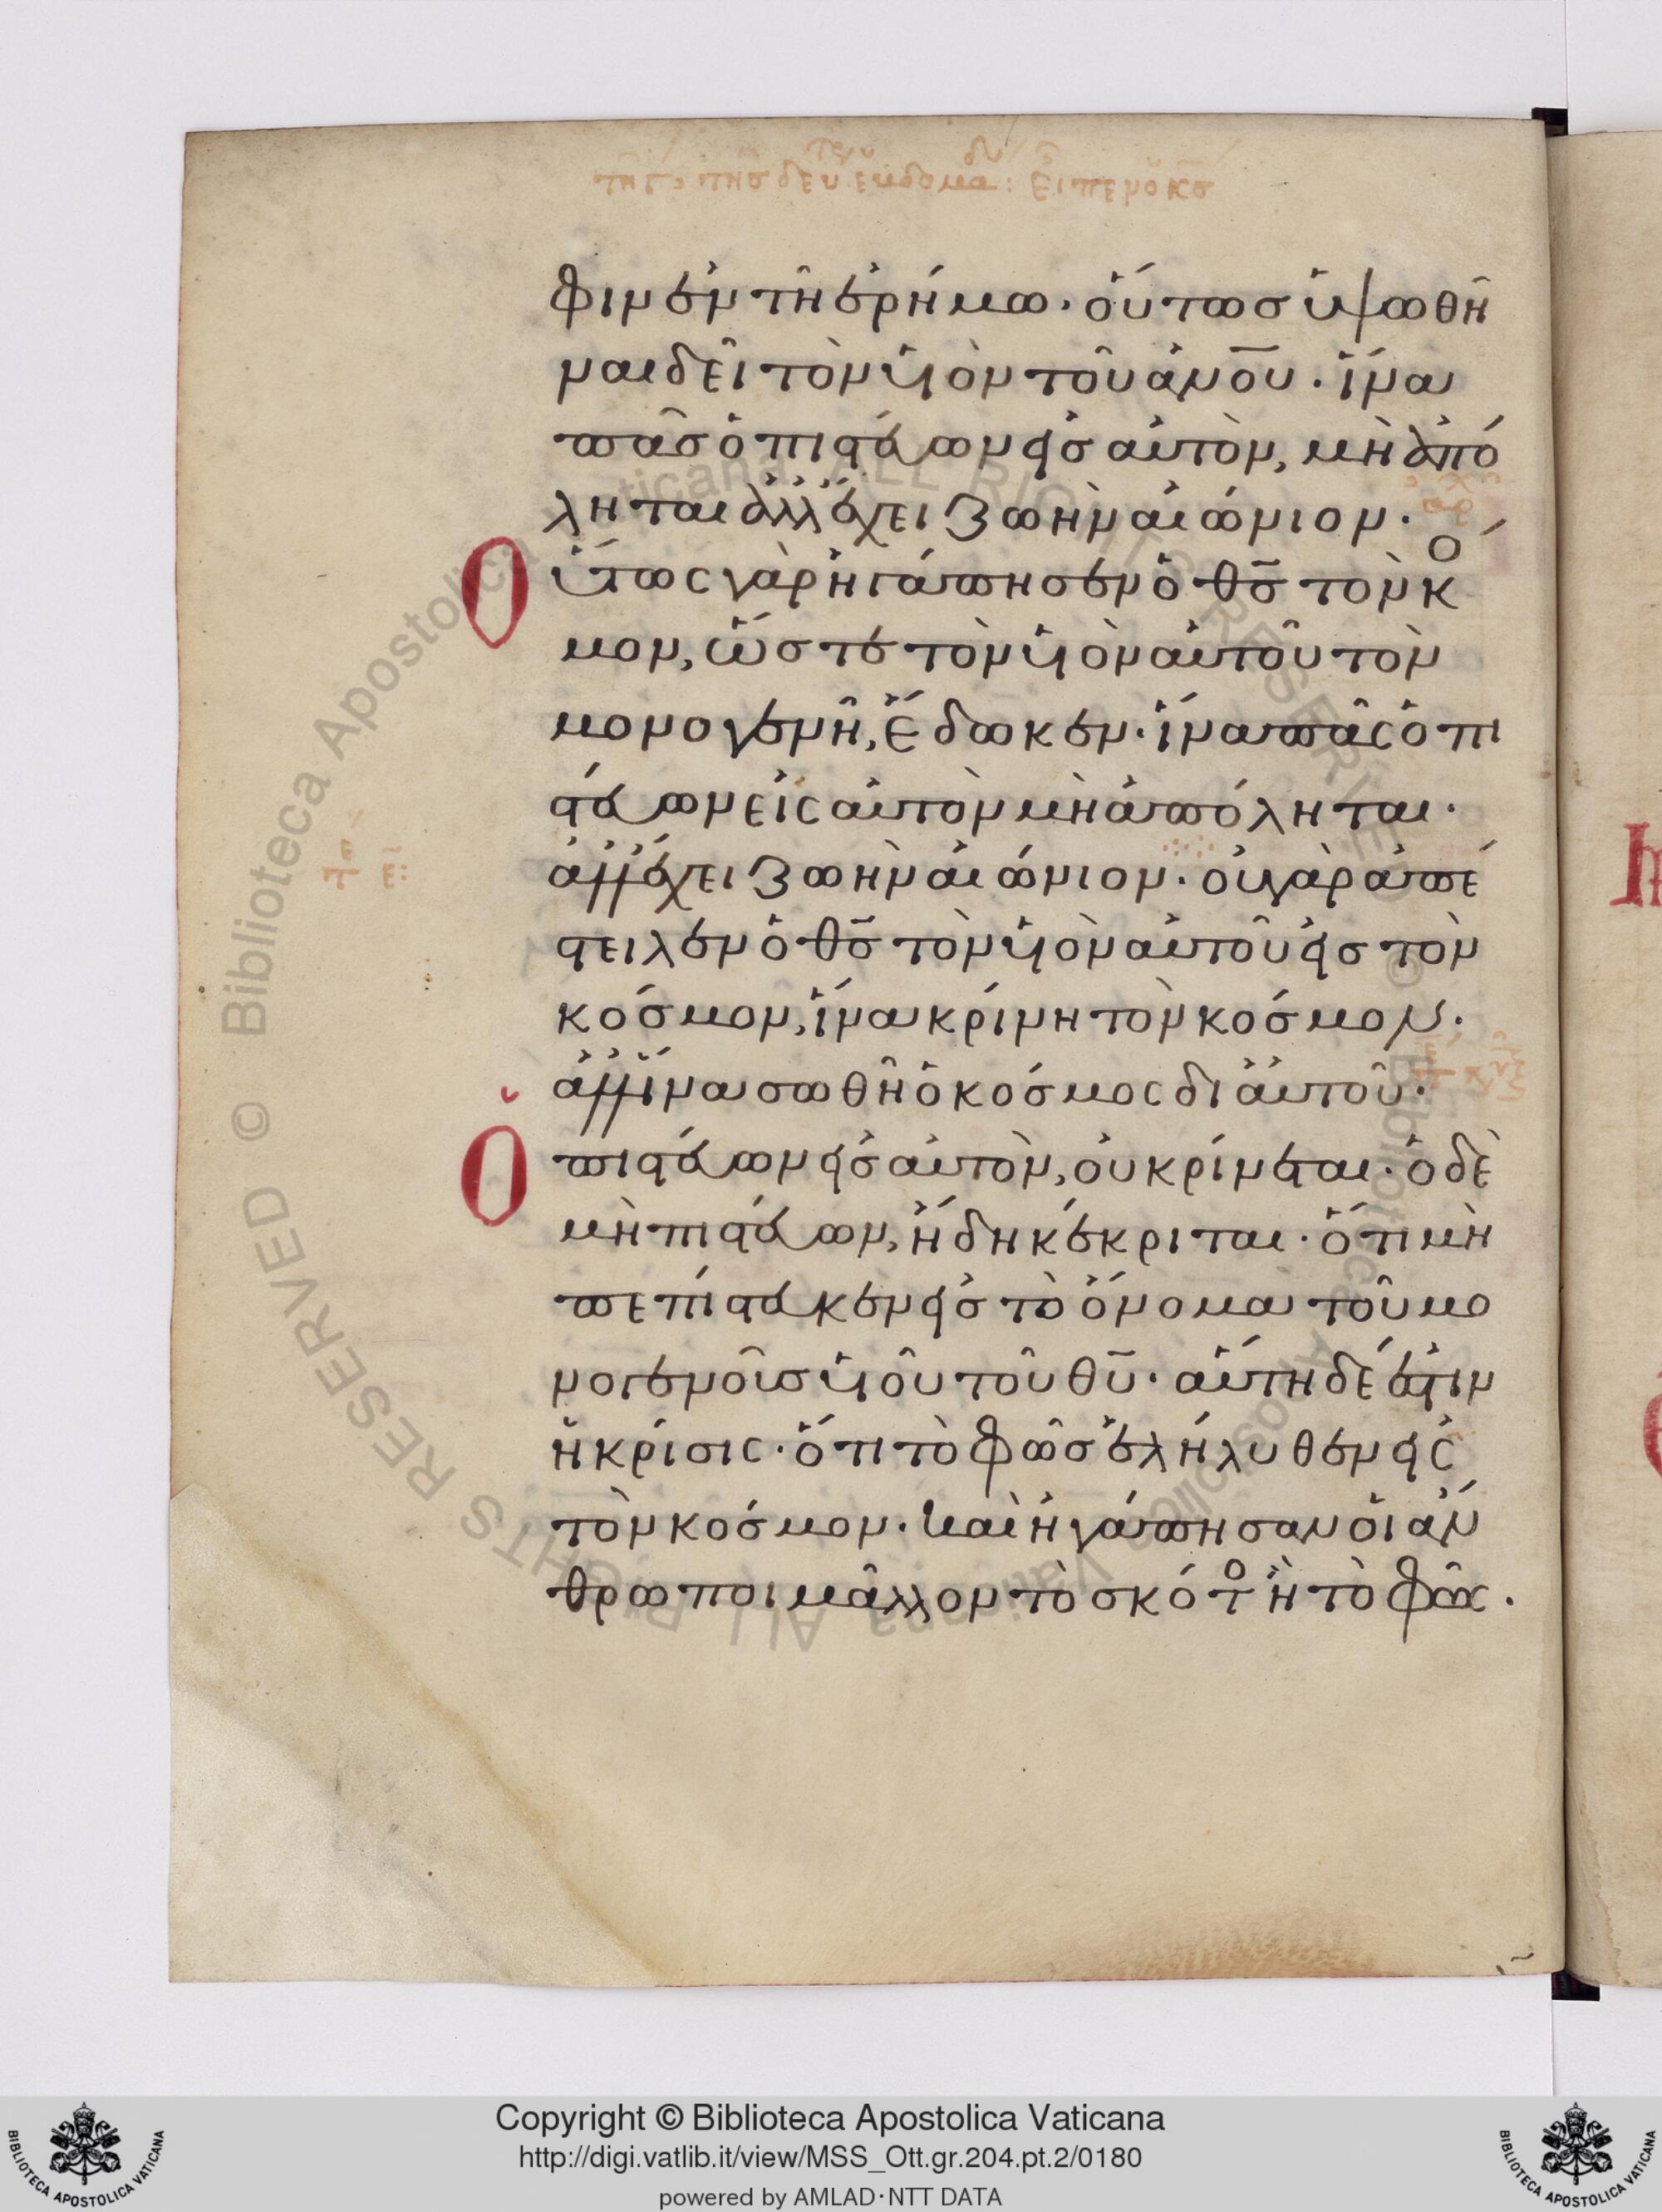 φιν ἐν τῆ ἐρήμω · οὕτως ὑψωθῆ
ναι δεῖ τὸν υἱὸν τοῦ ἀν̅ο̅υ̅ · ἵνα
πᾶς ὁ πιστεύων εἰς αὐτὸν, μὴ ἀπό
ληται ἀλλ' ἔχει ζωὴν αἰώνιον ·
Οὕτως γὰρ ἠγάπησεν ὁ θ̅ς̅ τὸν κό
μον, ὥστε τὸν υἱὸν αὐτοῦ τὸν
μονογενῆ, ἔδωκεν · ἵνα πᾶς ὁ πι
στεύων εἰς αὐτὸν μὴ ἀπόληται ·
ἀλλ' ἔχει ζωὴν αἰώνιον · οὐ γὰρ ἀπέ
στειλεν ὁ θ̅ς̅ τὸν υἱὸν αὐτοῦ εἰς τὸν
κόσμον, ἵνα κρίνη τὸν κόσμον ·
ἀλλ' ἵνα σωθῆ ὁ κόσμος δι' αὐτοῦ ·
Ὁ πιστεύων εἰς αὐτὸν, οὐ κρίνεται · ὁ δὲ
μὴ πιστεύων, ἤδη κέκριται · ὅτι μὴ
πεπίστευκεν εἰς τὸ ὄνομα τοῦ μο
νογενοῦς υἱοῦ τοῦ θ̅υ̅ · αὕτη δέ ἐστιν
ἡ κρίσις · ὅτι τὸ φῶς ἐλήλυθεν εἰς
τὸν κόσμον · καὶ ἠγάπησαν οἱ ἄν
θρωποι μᾶλλον τὸ σκότος ἢ τὸ φῶς ·
Copyright © Biblioteca Apostolica Vaticana
http://digi.vatlib.it/view/MSS_Ott.gr.204.pt.2/0180
powered by AMLAD·NTT DATA